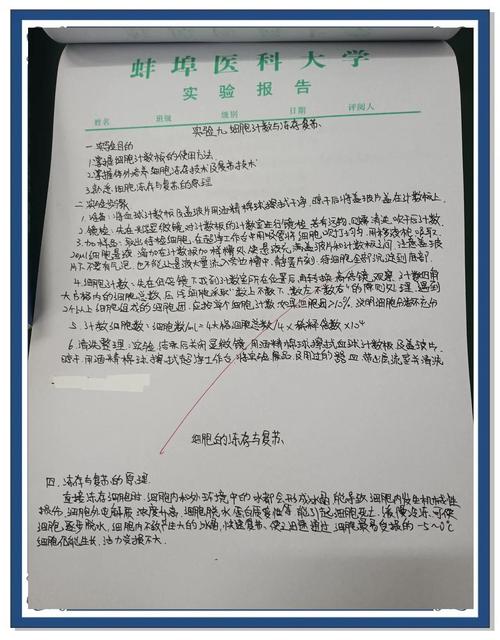 蚌埠医科大学
实验报告
姓名 班级 级别 日期 评阅人
实验九 细胞计数与冻存复苏
一 实验目的
1.掌握细胞计数板的使用方法
2.掌握体外培养细胞冻存技术及复苏技术
3.熟悉细胞冻存与复苏的原理
二 实验步骤
1.准备:将血球计数板及盖玻片用酒精棉球擦拭干净,晾干后将盖玻片盖在计数板上.
2.镜检:先在显微镜对计数板的计数室进行镜检,若有污物,则需清洗,吹干后计数
3.加样品:取出待检细胞,在超净工作台用吸管将细胞吹打均匀,用移液枪吸取
20μl细胞悬液,滴加在计数板加样槽处,使悬液充满盖玻片和计数板之间,注意盖玻
片下不要有气泡,也不能让悬液流入旁边槽中,静置片刻,待细胞全部沉到底部
4.细胞计数:先在低倍镜下找到计数室所在位置后,再转换高倍镜观察,计数四角
大方格内的细胞总数,压线细胞采取"数上不数下,数左不数右"的原则处理,遇到
2个以上细胞组成的细胞团,应按单个细胞计数,如细胞团>10%,说明细胞分散不充分
5.计数细胞数:细胞数/mL=4大格细胞总数/4×稀释倍数×10⁴
6.清洗整理:实验结束后关闭显微镜,用酒精棉球擦拭血球计数板及盖玻片,
晾干.用酒精棉球擦拭超净工作台,将实验废品及用过的器皿带出底流置并清洗
细胞的冻存与复苏
四.冻存与复苏的原理
直接冻存细胞时,细胞内和外环境中的水都会形成冰晶,能导致细胞内发生机械性
损伤,细胞外电解质浓度升高,细胞脱水,蛋白质变性等,能引起细胞死亡.缓慢冷冻,可使
细胞逐步脱水,细胞内不致产生大的冰晶,快速复苏,使之迅速通过细胞最易受损的-5~0℃
细胞仍能生长,活力受损不大.